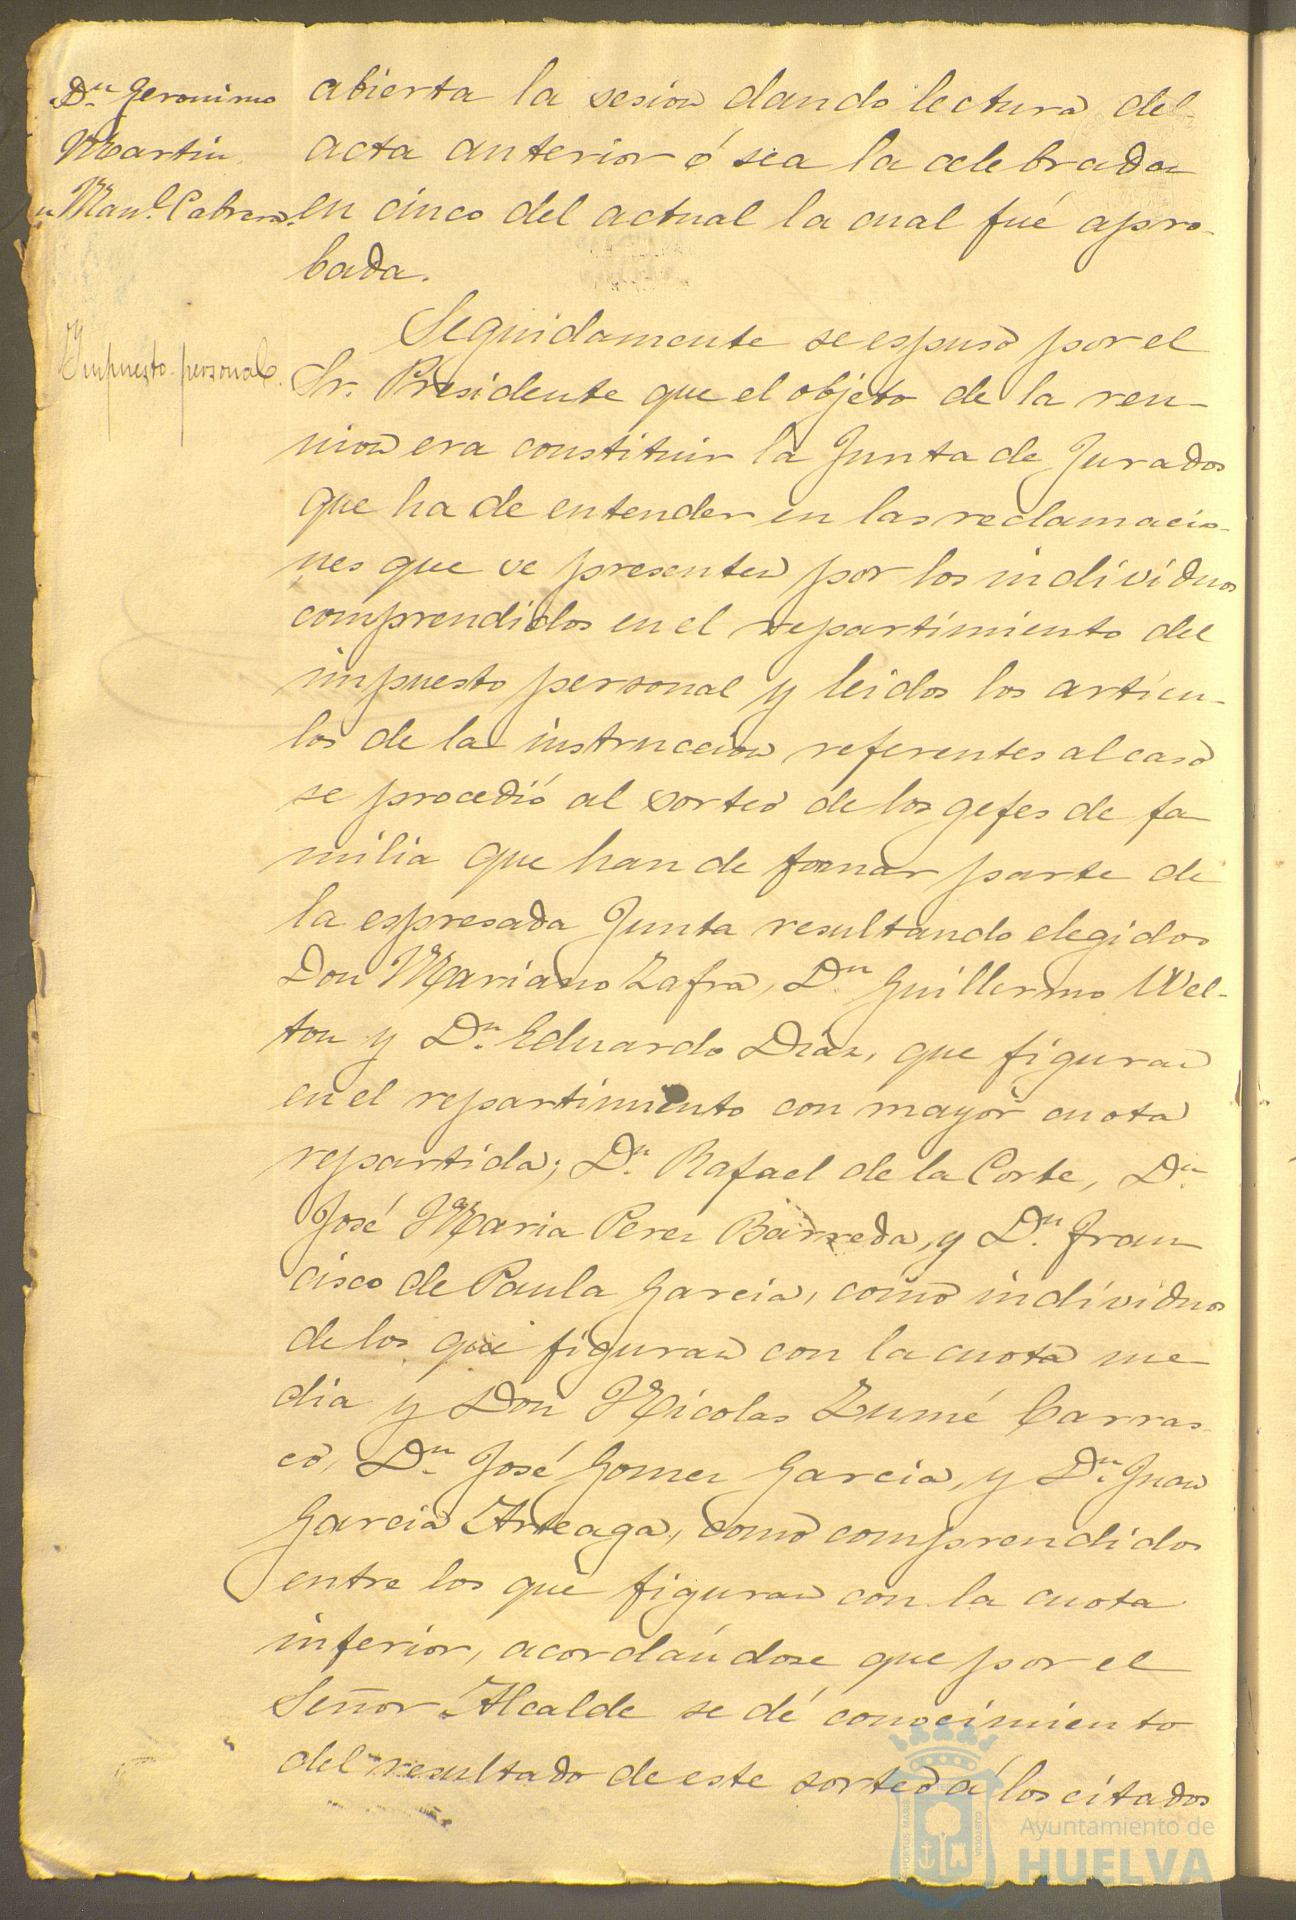 Dn. Geronimo
Martin
" Manl. Cabrera
Impuesto personal.
abierta la sesion dando lectura del
acta anterior ó sea la celebrada
en cinco del actual la cual fué apro-
bada.
Seguidamente se espuso por el
Sr. Presidente que el objeto de la reu-
nion era constituir la Junta de Jurados
que ha de entender en las reclamacio-
nes que se presenten por los individuos
comprendidos en el repartimiento del
impuesto personal y leidos los articu-
los de la instruccion referentes al caso
se procedió al sorteo de los gefes de fa-
milia que han de formar parte de
la espresada Junta resultando elegidos
Don Mariano Zafra, Dn. Guillermo Wel-
ton y Dn. Eduardo Diaz, que figuran
en el repartimiento con mayor cuota
repartida; Dn. Rafael de la Corte, Dn.
José Maria Perez Barreda, y Dn. Fran
cisco de Paula Garcia, como individuos
de los que figuran con la cuota me-
dia y Don Nicolas Zumé Carras-
co, Dn. José Gomez Garcia, y Dn. Juan
Garcia Arteaga, como comprendidos
entre los que figuran con la cuota
inferior, acordándose que por el
Señor Alcalde se dé conocimiento
del resultado de este sorteo á los citados
Ayuntamiento de
HUELVA